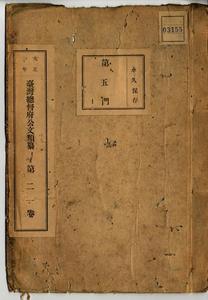 03155
永久保存
第五門
大正
臺灣總督府公文類纂
第二一卷